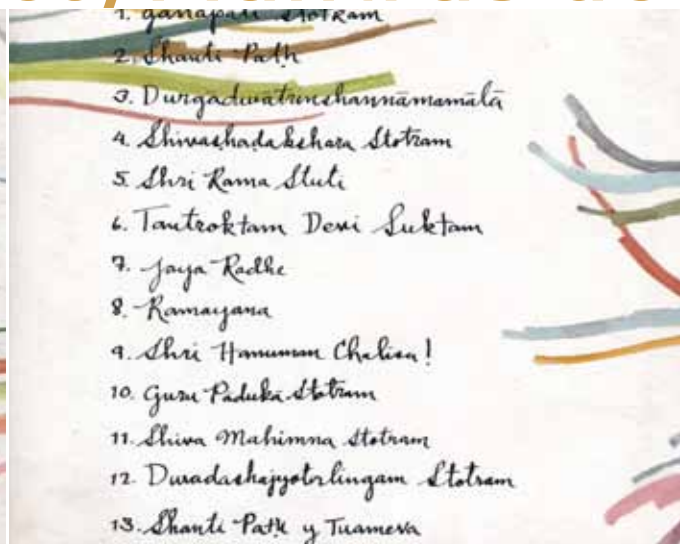 1. Ganapati Stotram
2. Shanti Path
3. Durgadwatrinshannāmamālā
4. Shivashadakshara Stotram
5. Shri Rama Stuti
6. Tantroktam Devi Suktam
7. Jaya Radhe
8. Ramayana
9. Shri Hanuman Chalisa!
10. Guru Paduka Stotram
11. Shiva Mahimna Stotram
12. Dwadashajyotirlingam Stotram
13. Shanti Path y Twameva